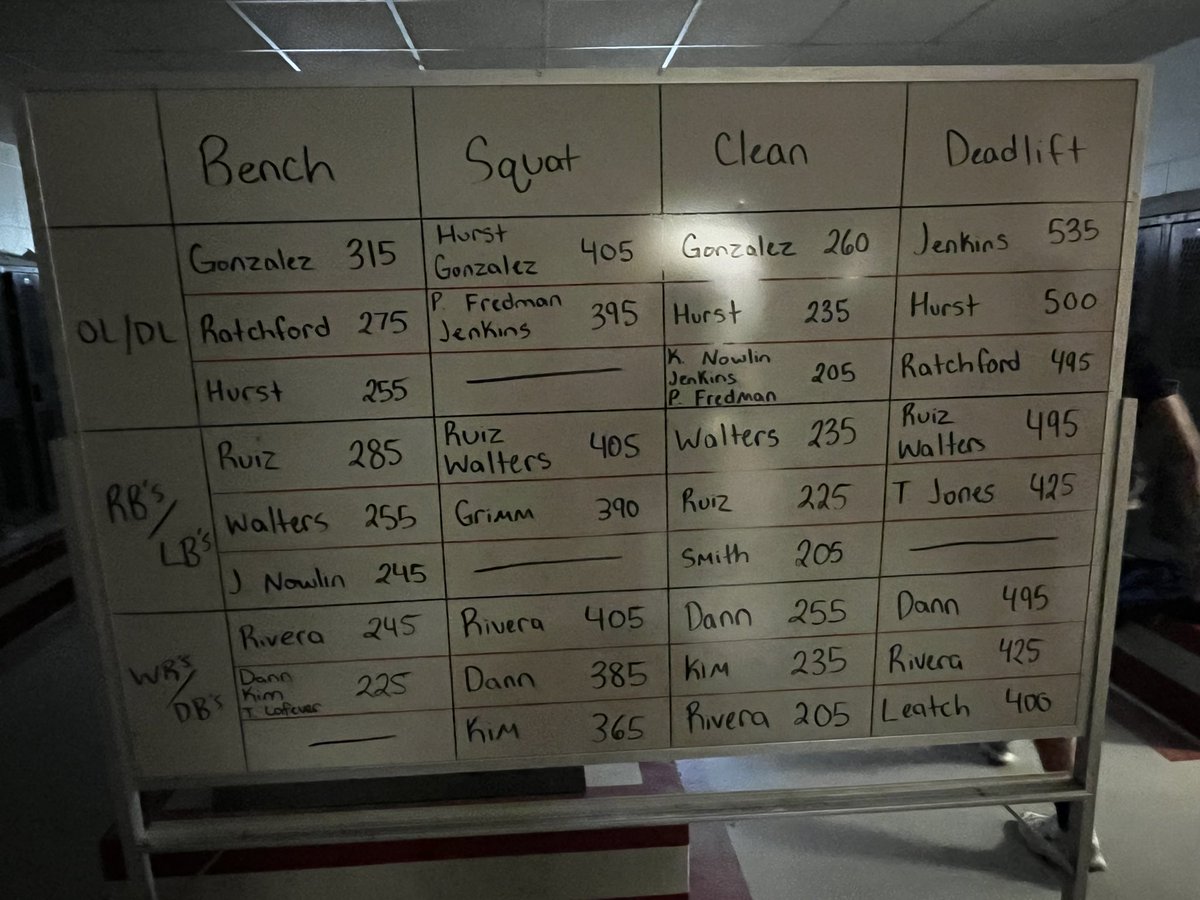 Bench Squat Clean Deadlift
OL/DL
Gonzalez 315
Hurst
Gonzalez 405
Gonzalez 260
Jenkins 535
Ratchford 275
P. Fredman
Jenkins 395
Hurst 235
Hurst 500
Hurst 255
K. Nowlin
Jenkins
P. Fredman 205
Ratchford 495
RB's/
LB's
Ruiz 285
Ruiz
Walters 405
Walters 235
Ruiz
Walters 495
Walters 255
Grimm 390
Ruiz 225
T Jones 425
J Nowlin 245
Smith 205
WR's/
DB's
Rivera 245
Rivera 405
Dann 255
Dann 495
Dann
Kim
T. Lofever 225
Dann 385
Kim 235
Rivera 425
Kim 365
Rivera 205
Leatch 400